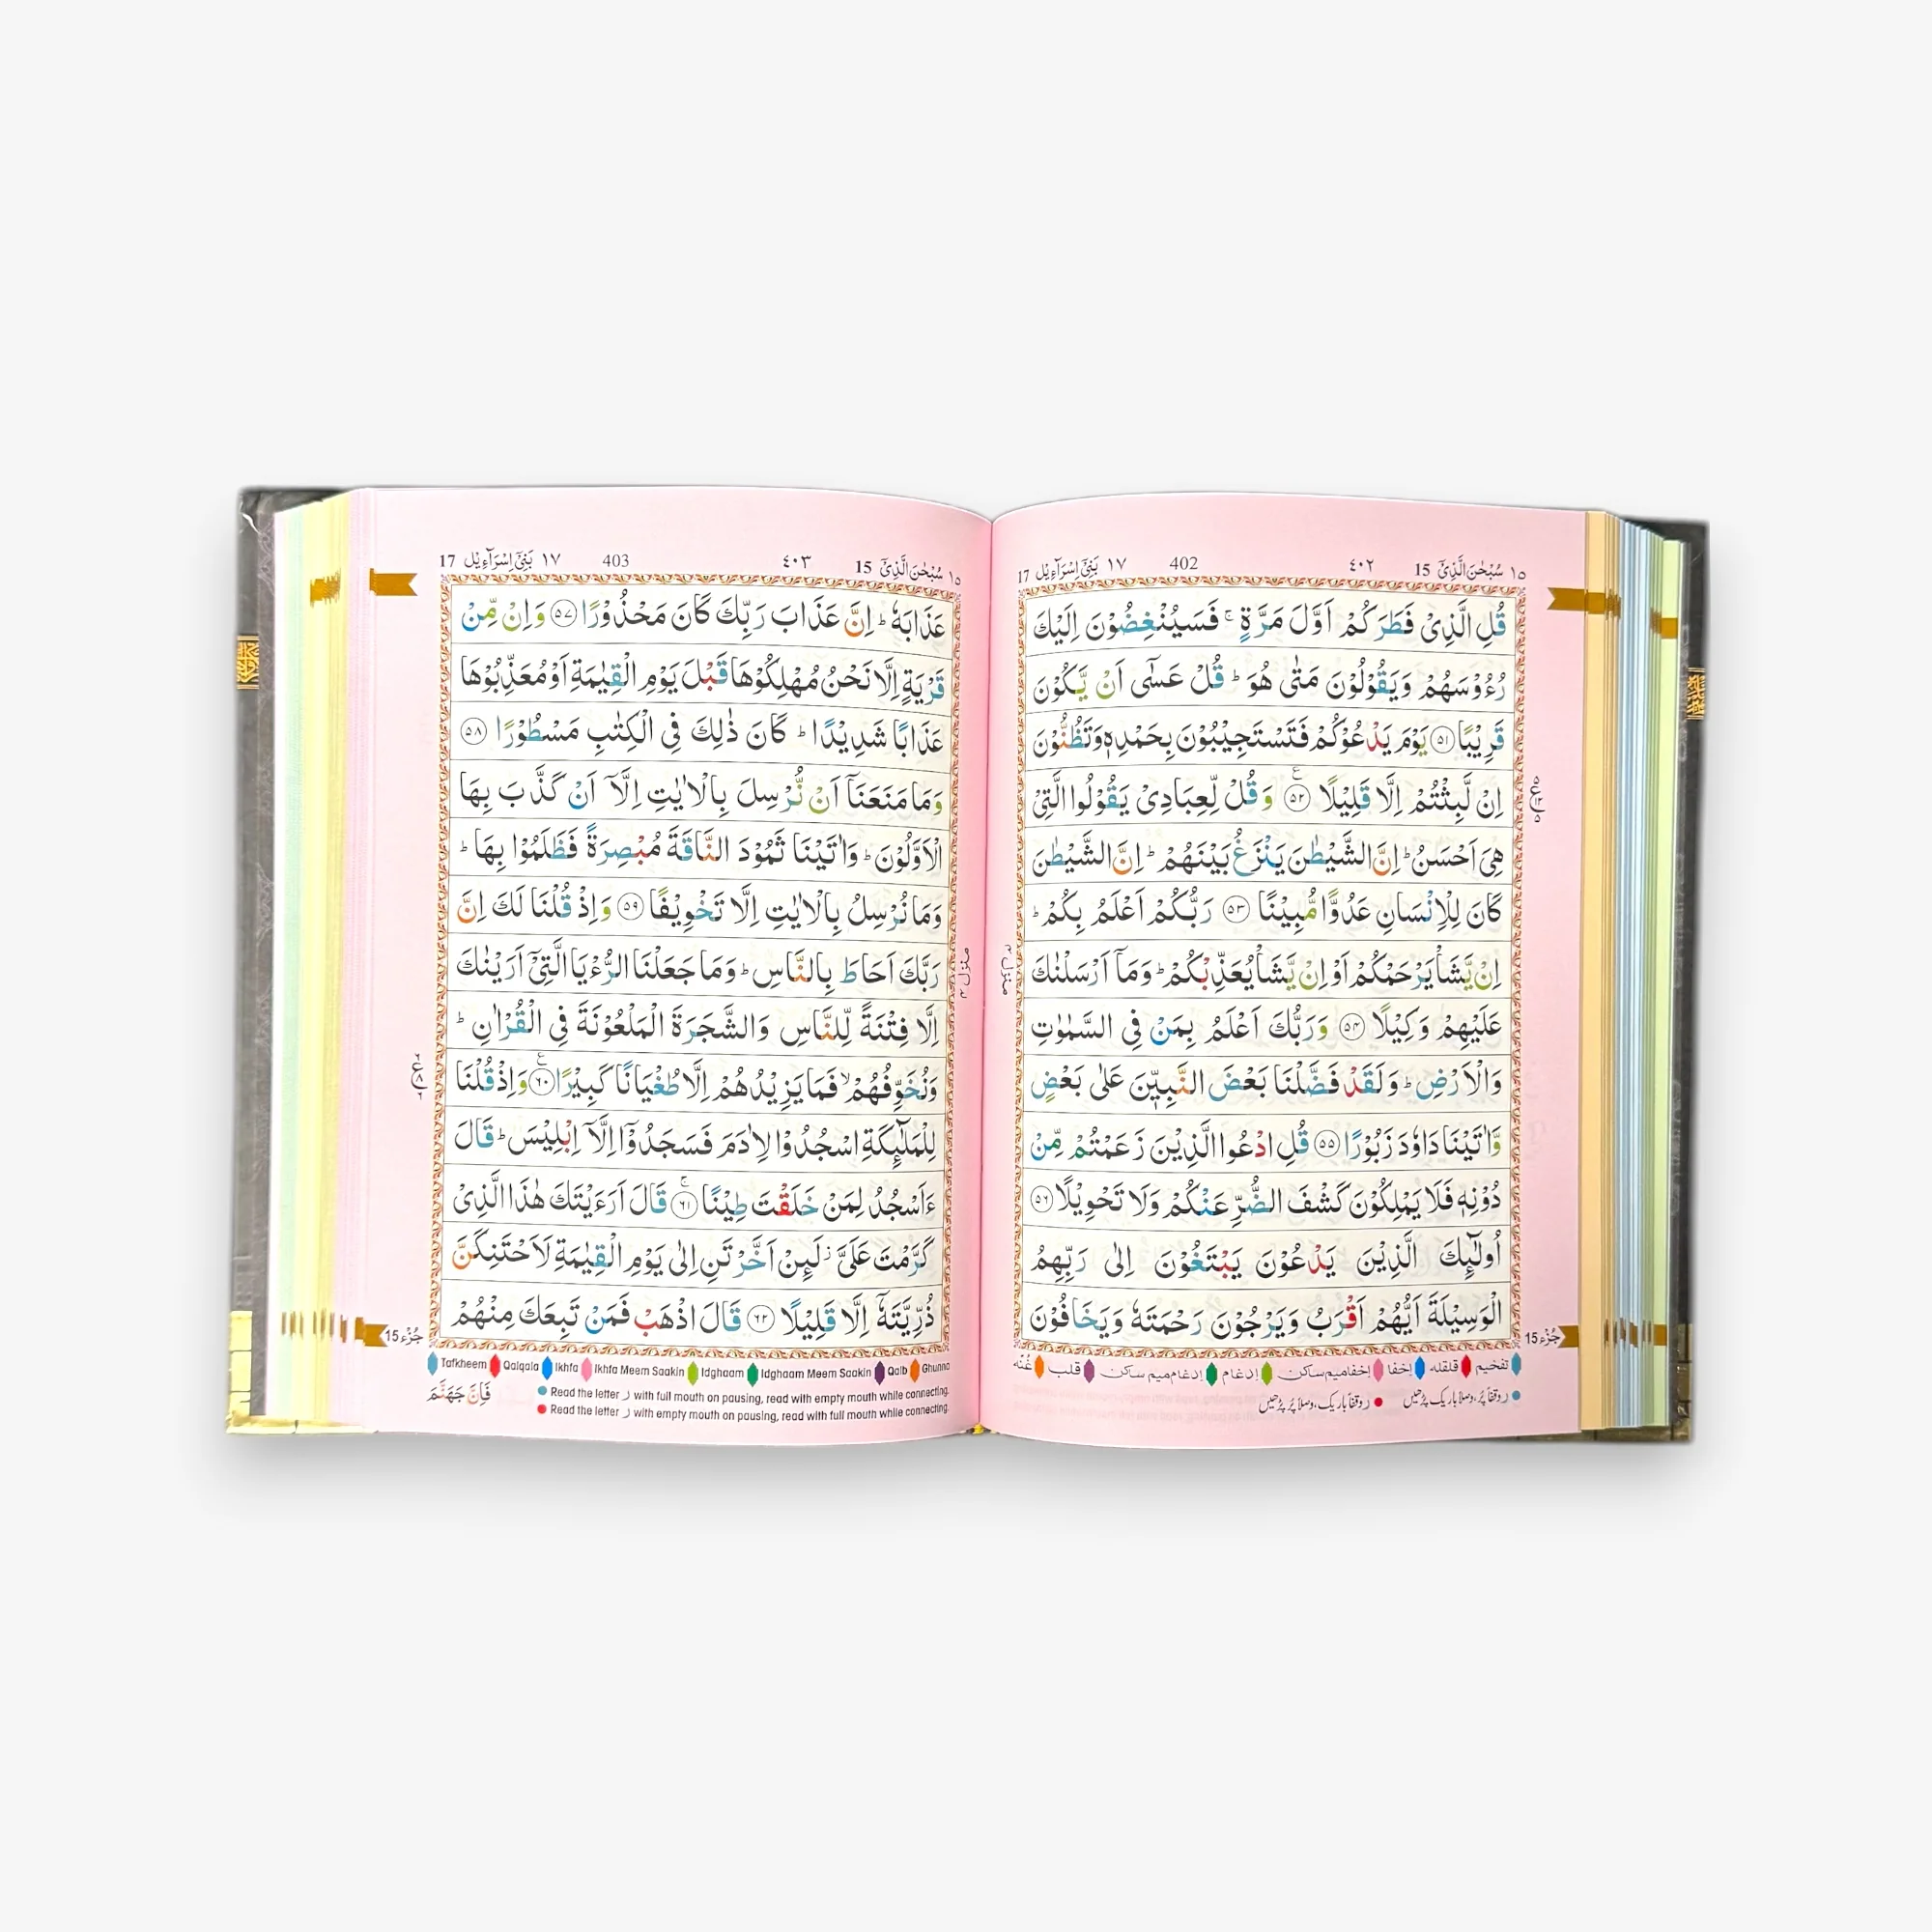 ١٥ سُبْحٰنَ الَّذِیْۤ 15 ٤٠٢ 402 ١٧ بَنِیْۤ اِسْرَآءِیْل 17
قُلِ الَّذِیْ فَطَرَكُمْ اَوَّلَ مَرَّةٍ ۚ فَسَیُنْغِضُوْنَ اِلَیْكَ
رُءُوْسَهُمْ وَیَقُوْلُوْنَ مَتٰی هُوَ ؕ قُلْ عَسٰۤی اَنْ یَّكُوْنَ
قَرِیْبًا ﴿٥١﴾ یَوْمَ یَدْعُوْكُمْ فَتَسْتَجِیْبُوْنَ بِحَمْدِهٖ وَتَظُنُّوْنَ
اِنْ لَّبِثْتُمْ اِلَّا قَلِیْلًا ﴿٥٢﴾ وَقُلْ لِّعِبَادِیْ یَقُوْلُوا الَّتِیْ
هِیَ اَحْسَنُ ؕ اِنَّ الشَّیْطٰنَ یَنْزَغُ بَیْنَهُمْ ؕ اِنَّ الشَّیْطٰنَ
كَانَ لِلْاِنْسَانِ عَدُوًّا مُّبِیْنًا ﴿٥٣﴾ رَبُّكُمْ اَعْلَمُ بِكُمْ ؕ
اِنْ یَّشَاْ یَرْحَمْكُمْ اَوْ اِنْ یَّشَاْ یُعَذِّبْكُمْ ؕ وَمَاۤ اَرْسَلْنٰكَ
عَلَیْهِمْ وَكِیْلًا ﴿٥٤﴾ وَرَبُّكَ اَعْلَمُ بِمَنْ فِی السَّمٰوٰتِ
وَالْاَرْضِ ؕ وَلَقَدْ فَضَّلْنَا بَعْضَ النَّبِیّٖنَ عَلٰی بَعْضٍ
وَّاٰتَیْنَا دَاوٗدَ زَبُوْرًا ﴿٥٥﴾ قُلِ ادْعُوا الَّذِیْنَ زَعَمْتُمْ مِّنْ
دُوْنِهٖ فَلَا یَمْلِكُوْنَ كَشْفَ الضُّرِّ عَنْكُمْ وَلَا تَحْوِیْلًا ﴿٥٦﴾
اُولٰٓئِكَ الَّذِیْنَ یَدْعُوْنَ یَبْتَغُوْنَ اِلٰی رَبِّهِمُ
الْوَسِیْلَةَ اَیُّهُمْ اَقْرَبُ وَیَرْجُوْنَ رَحْمَتَهٗ وَیَخَافُوْنَ
جُزْء 15
منزل ٤
تفخیم قلقلہ اِخفا اِخفا میم ساکن اِدغام اِدغام میم ساکن قلب غُنّہ
ر وقفاً پُر، وصلاً باریک پڑھیں ر وقفاً باریک، وصلاً پُر پڑھیں
١٥ سُبْحٰنَ الَّذِیْۤ 15 ٤٠٣ 403 ١٧ بَنِیْۤ اِسْرَآءِیْل 17
عَذَابَهٗ ؕ اِنَّ عَذَابَ رَبِّكَ كَانَ مَحْذُوْرًا ﴿٥٧﴾ وَاِنْ مِّنْ
قَرْیَةٍ اِلَّا نَحْنُ مُهْلِكُوْهَا قَبْلَ یَوْمِ الْقِیٰمَةِ اَوْ مُعَذِّبُوْهَا
عَذَابًا شَدِیْدًا ؕ كَانَ ذٰلِكَ فِی الْكِتٰبِ مَسْطُوْرًا ﴿٥٨﴾
وَمَا مَنَعَنَاۤ اَنْ نُّرْسِلَ بِالْاٰیٰتِ اِلَّاۤ اَنْ كَذَّبَ بِهَا
الْاَوَّلُوْنَ ؕ وَاٰتَیْنَا ثَمُوْدَ النَّاقَةَ مُبْصِرَةً فَظَلَمُوْا بِهَا ؕ
وَمَا نُرْسِلُ بِالْاٰیٰتِ اِلَّا تَخْوِیْفًا ﴿٥٩﴾ وَاِذْ قُلْنَا لَكَ اِنَّ
رَبَّكَ اَحَاطَ بِالنَّاسِ ؕ وَمَا جَعَلْنَا الرُّءْیَا الَّتِیْۤ اَرَیْنٰكَ
اِلَّا فِتْنَةً لِّلنَّاسِ وَالشَّجَرَةَ الْمَلْعُوْنَةَ فِی الْقُرْاٰنِ ؕ
وَنُخَوِّفُهُمْ ۙ فَمَا یَزِیْدُهُمْ اِلَّا طُغْیَانًا كَبِیْرًا ﴿٦٠﴾ وَاِذْ قُلْنَا
لِلْمَلٰٓئِكَةِ اسْجُدُوْا لِاٰدَمَ فَسَجَدُوْۤا اِلَّاۤ اِبْلِیْسَ ؕ قَالَ
ءَاَسْجُدُ لِمَنْ خَلَقْتَ طِیْنًا ﴿٦١﴾ قَالَ اَرَءَیْتَكَ هٰذَا الَّذِیْ
كَرَّمْتَ عَلَیَّ ؗ لَىِٕنْ اَخَّرْتَنِ اِلٰی یَوْمِ الْقِیٰمَةِ لَاَحْتَنِكَنَّ
ذُرِّیَّتَهٗۤ اِلَّا قَلِیْلًا ﴿٦٢﴾ قَالَ اذْهَبْ فَمَنْ تَبِعَكَ مِنْهُمْ
جُزْء 15
منزل ٤
Tafkheem Qalqala Ikhfa Ikhfa Meem Saakin Idghaam Idghaam Meem Saakin Qalb Ghunna
Read the letter ر with full mouth on pausing, read with empty mouth while connecting.
Read the letter ر with empty mouth on pausing, read with full mouth while connecting.
فَاِنَّ جَهَنَّمَ